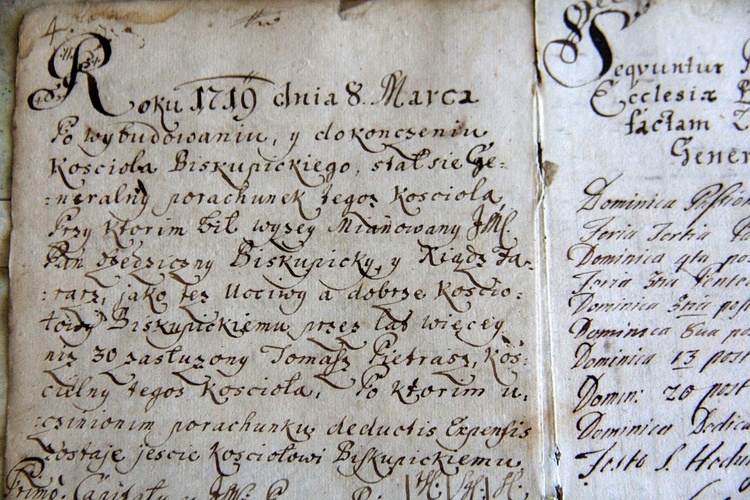 4
Roku 1719 dnia 8. Marca
Po wybudowaniu, y dokonczeniu
Kosciola Biskupickiego, stał się Ge-
:neralny porachunek tegoz Kosciola,
Przy ktorim bił wyzey Mianowany JMC.
Pan Dzedziczny Biskupicky, y Xiądz Fa-
:rarz, jako tez Ucciwy a dobrze Koscio-
:łowy Biskupickiemu przez lat więcey
niz 30 zasłuzony Tomasz Pietrasz, Kos-
cielny tegos Kosciola, Po ktorim u-
:czinionim porachunku deductis Expensis
zostaje jescie Kosciołowi Biskupickiemu
Primo: Capitału
Seqvuntur
Ecclesiæ
factam
Gener
Dominica Passion
Feria Tertia
Dominica 4ta post
Feria 3tia Pentec
Dominica 3tia post
Dominica 6ta po
Dominica 13 post
Domin: 20 post
Dominica Dedica
Festo S. Hedw